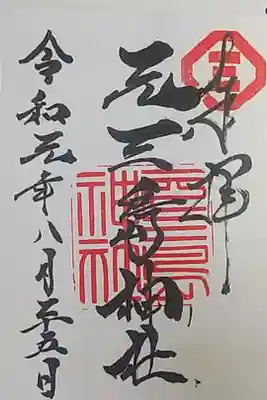 奉拝
元三島神社
令和元年八月二十五日
三